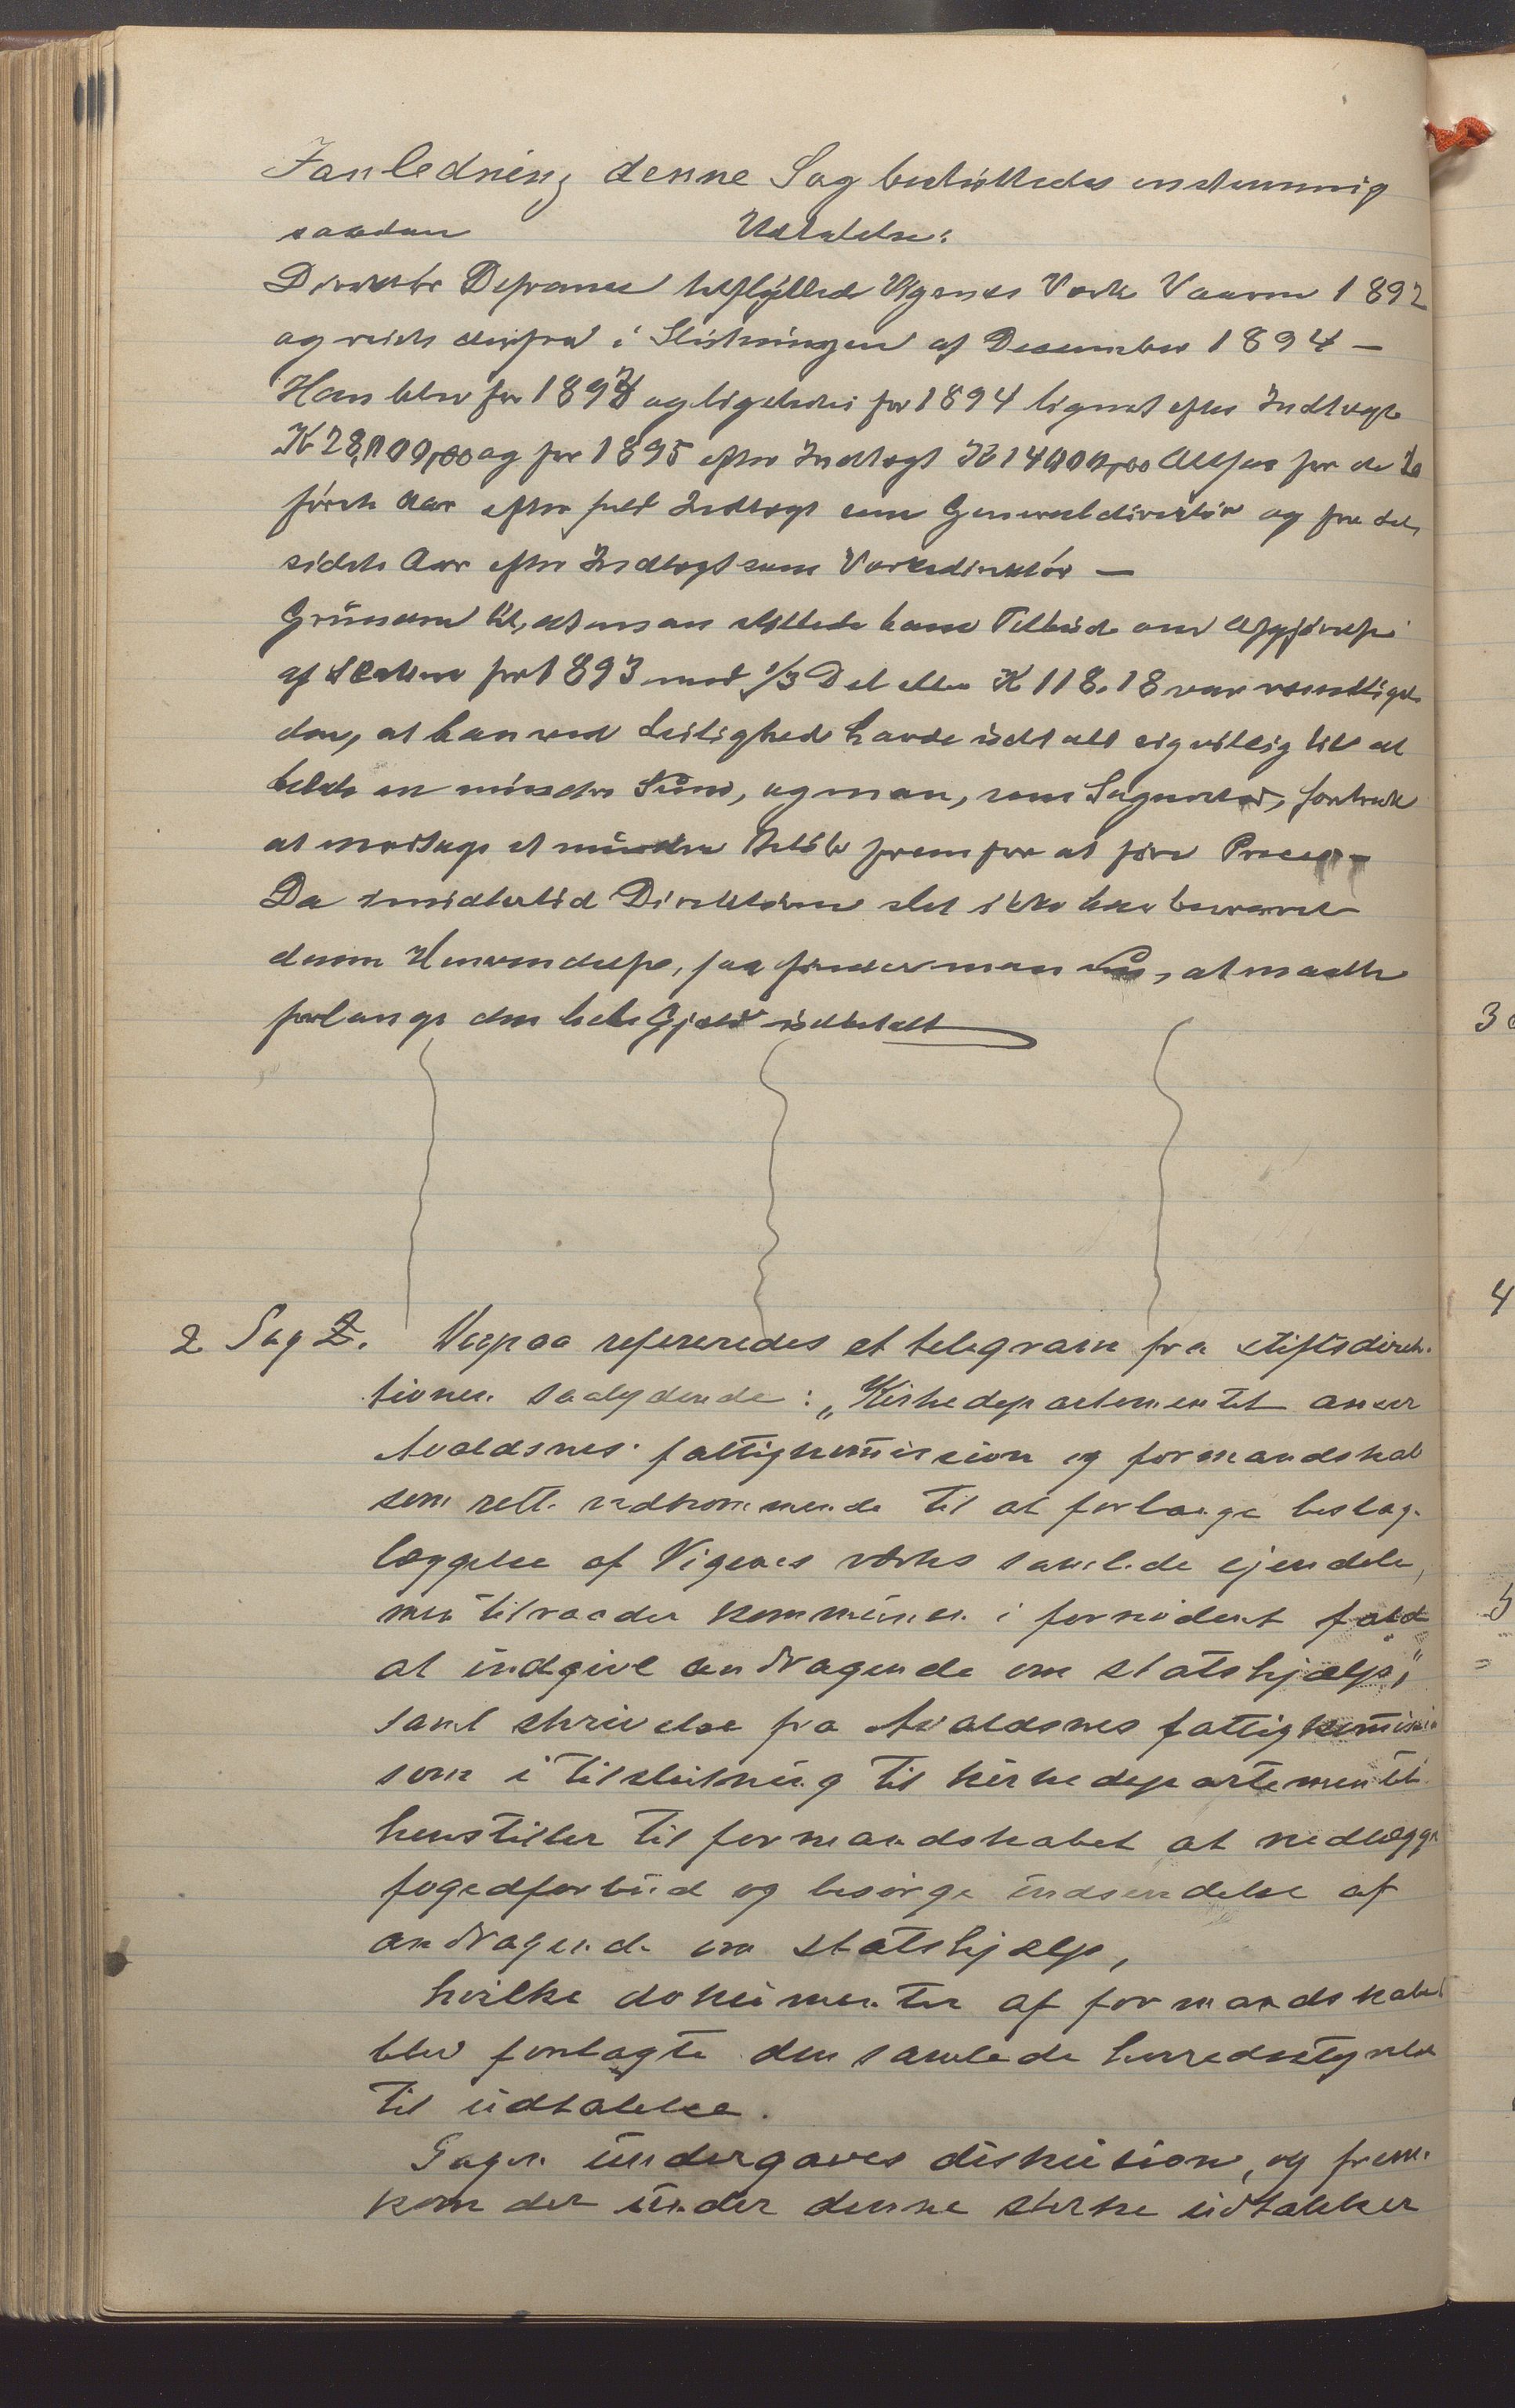 I anledning denne Sag besluttedes enstemmig
saadan Udtalelse:
Direktør Defrance tilflyttede Vigsnes Værk Vaaren 1892
og reiste derfra i Slutningen af December 1894 —
Han blev for 1893 og ligeledes for 1894 lignet efter Indtægt
K 28,000,00 og for 1895 efter Indtægt K 14000,00 Altsaa for de to
første Aar efter fuld Indtægt som Generaldirektør og for det
sidste Aar efter Indtægt som Værksdirektør —
Grunden til, at man stillede ham Tilbud om Afgjørelse
af Skatten for 1893 med 1/3 Del eller K 118.18 var væsentligst
den, at han ved Leilighed havde udtalt sig villig til at
betale en mindre Sum, og man, som Sagen stod, foretrak
at modtage et mindre Beløb fremfor at føre Proces —
Da imidlertid Direktøren slet ikke har besvaret
denne Henvendelse, saa finder man at maatte
forlange den hele Gjæld udbetalt
2 Sag 2. Derpaa refereredes et telegram fra stiftsdirek-
tionen saalydende: "Kirkedepartementet anser
Avaldsnes fattigkommission og formandskab
som rette vedkommende til at forlange beslag-
læggelse af Vigsnes værks samlede ejendele,
men tilraader kommunen i fornødent fald
at indgive andragende om statshjælp,"
samt skrivelse fra Avaldsnes fattigkommission
som i tilslutning til kirkedepartementet
henstiller til formandskabet at nedlægge
fogedforbud og besørge indsendelse af
andragende om statshjælp,
hvilke dokumenter af formandskabet
blev forelagte den samlede herredsstyrelse
til udtalelse.
Sagen undergaves diskusion, og frem-
kom der under denne sterke udtalelser